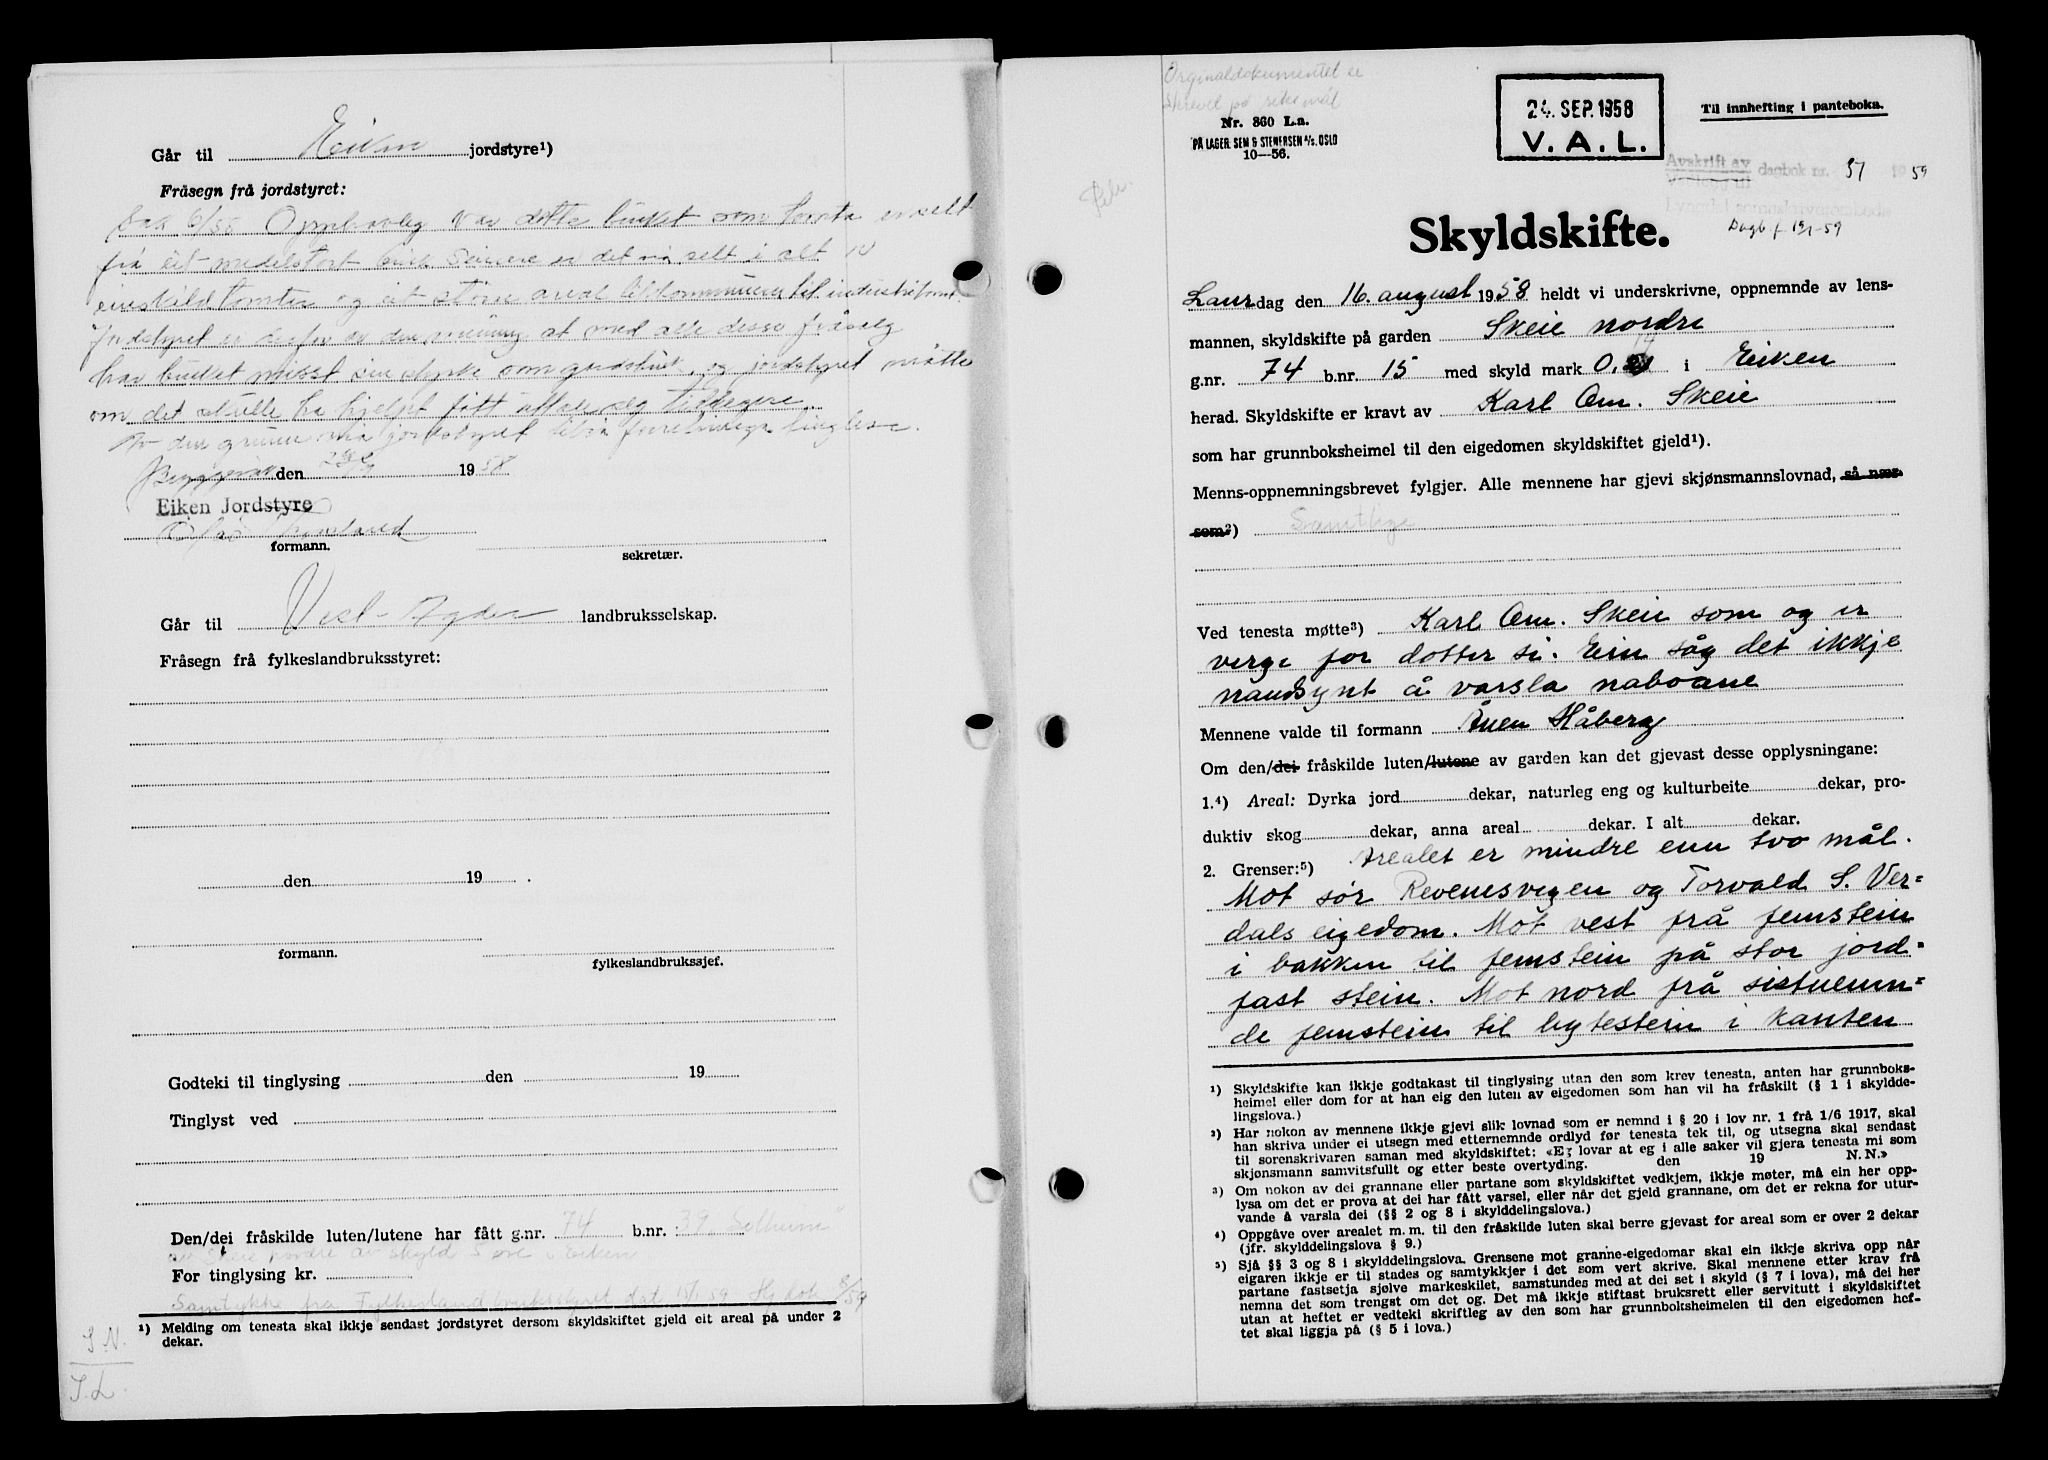 Går til Eiken jordstyre¹)
Fråsegn frå jordstyret:
Sak 6/58 Opphavleg var dette bruket som tomta er selt
frå eit medelstort bruk. Seinere er det nå selt i alt 10
einskild tomter og eit større areal til kommunen til industriformål.
Jordstyret er derfor av den meining at med alle desse fråsalg
har bruket misst sin styrke som gardsbruk, og jordstyret måtte
om det skulle ha hjelpt fått uttale seg tidlegere.
Av den grunn må jordstyret tilrå
den 1958
Eiken Jordstyre
formann.
sekretær.
Går til Vest-Agder landbruksselskap.
Fråsegn frå fylkeslandbruksstyret:
den 19 .
formann.
fylkeslandbrukssjef.
Godteki til tinglysing den 19
Tinglyst ved
Den/dei fråskilde luten/lutene har fått g.nr. 74 b.nr. 39 "Solheim"
av Skeie nordre av skyld 5 øre i Eiken
For tinglysing kr.
Samtykke fra Fylkeslandbruksstyret dat. 15/1-59
¹) Melding om tenesta skal ikkje sendast jordstyret dersom skyldskiftet gjeld eit areal på under 2
dekar.
S.N.
J.L.
Orginaldokumentet er
skrevet på
Nr. 360 L.a.
PÅ LAGER: SEM & STENERSEN A/S, OSLO
10—56.
24. SEP. 1958
V. A. L.
Til innhefting i panteboka.
Avskrift av dagbok nr. 37 1959
Lyngdal sorenskriverembede
Dagb.f. 19/1-59
Skyldskifte.
Laurdag den 16. august 1958 heldt vi underskrivne, oppnemnde av lens-
mannen, skyldskifte på garden Skeie nordre
g.nr. 74 b.nr. 15 med skyld mark 0, 19 i Eiken
herad. Skyldskifte er kravt av Karl Om. Skeie
som har grunnboksheimel til den eigedomen skyldskiftet gjeld¹).
Menns-oppnemningsbrevet fylgjer. Alle mennene har gjevi skjønsmannslovnad, så nær
som²) Samtlige
Ved tenesta møtte³) Karl Om. Skeie som og er
verge for dotter si. Ein såg det ikkje
naudsynt å varsla naboane
Mennene valde til formann Ånen Håberg
Om den/dei fråskilde luten/lutene av garden kan det gjevast desse opplysningane:
1.⁴) Areal: Dyrka jord dekar, naturleg eng og kulturbeite dekar, pro-
duktiv skog dekar, anna areal dekar. I alt dekar.
2. Grenser:⁵) Arealet er mindre enn tvo mål.
Mot sør Revenesvegen og Torvald S. Ver=
dals eigedom. Mot vest frå femstein
i bakken til femstein på stor jord=
fast stein. Mot nord frå sistnemn=
de femstein til bytestein i kanten
¹) Skyldskifte kan ikkje godtakast til tinglysing utan den som krev tenesta, anten har grunnboks-
heimel eller dom for at han eig den luten av eigedomen som han vil ha fråskilt (§ 1 i skyldde-
lingslova.)
²) Har nokon av mennene ikkje gjevi slik lovnad som er nemnd i § 20 i lov nr. 1 frå 1/6 1917, skal
han skriva under ei utsegn med etternemnde ordlyd før tenesta tek til, og utsegna skal sendast
til sorenskrivaren saman med skyldskiftet: «Eg lovar at eg i alle saker vil gjera tenesta mi som
skjønsmann samvitsfullt og etter beste overtyding. den 19 N. N.»
³) Om nokon av dei grannane eller partane som skyldskiftet vedkjem, ikkje møter, må ein her opp-
lysa om det er prova at dei har fått varsel, eller når det gjeld grannane, om det er rekna for utur-
vande å varsla dei (§§ 2 og 8 i skylddelingslova.)
⁴) Oppgåve over arealet m. m. til den fråskilde luten skal berre gjevast for areal som er over 2 dekar
(jfr. skylddelingslova § 9.)
⁵) Sjå §§ 3 og 8 i skylddelingslova. Grensene mot granne-eigedomar skal ein ikkje skriva opp når
eigaren ikkje er til stades og samtykkjer i det som vert skrive. Skal mennene etter krav frå
partane fastsetja sjølve markeskilet, samstundes med at dei set i skyld (§ 7 i lova), må dei her
nemna det som trengst om det og. Det må ikkje stiftast bruksrett eller servitutt i skyldskiftet
utan at heftet er vedteki skriftleg av den som har grunnboksheimelen til den eigedomen hef-
tet skal liggja på (§ 5 i lova.)